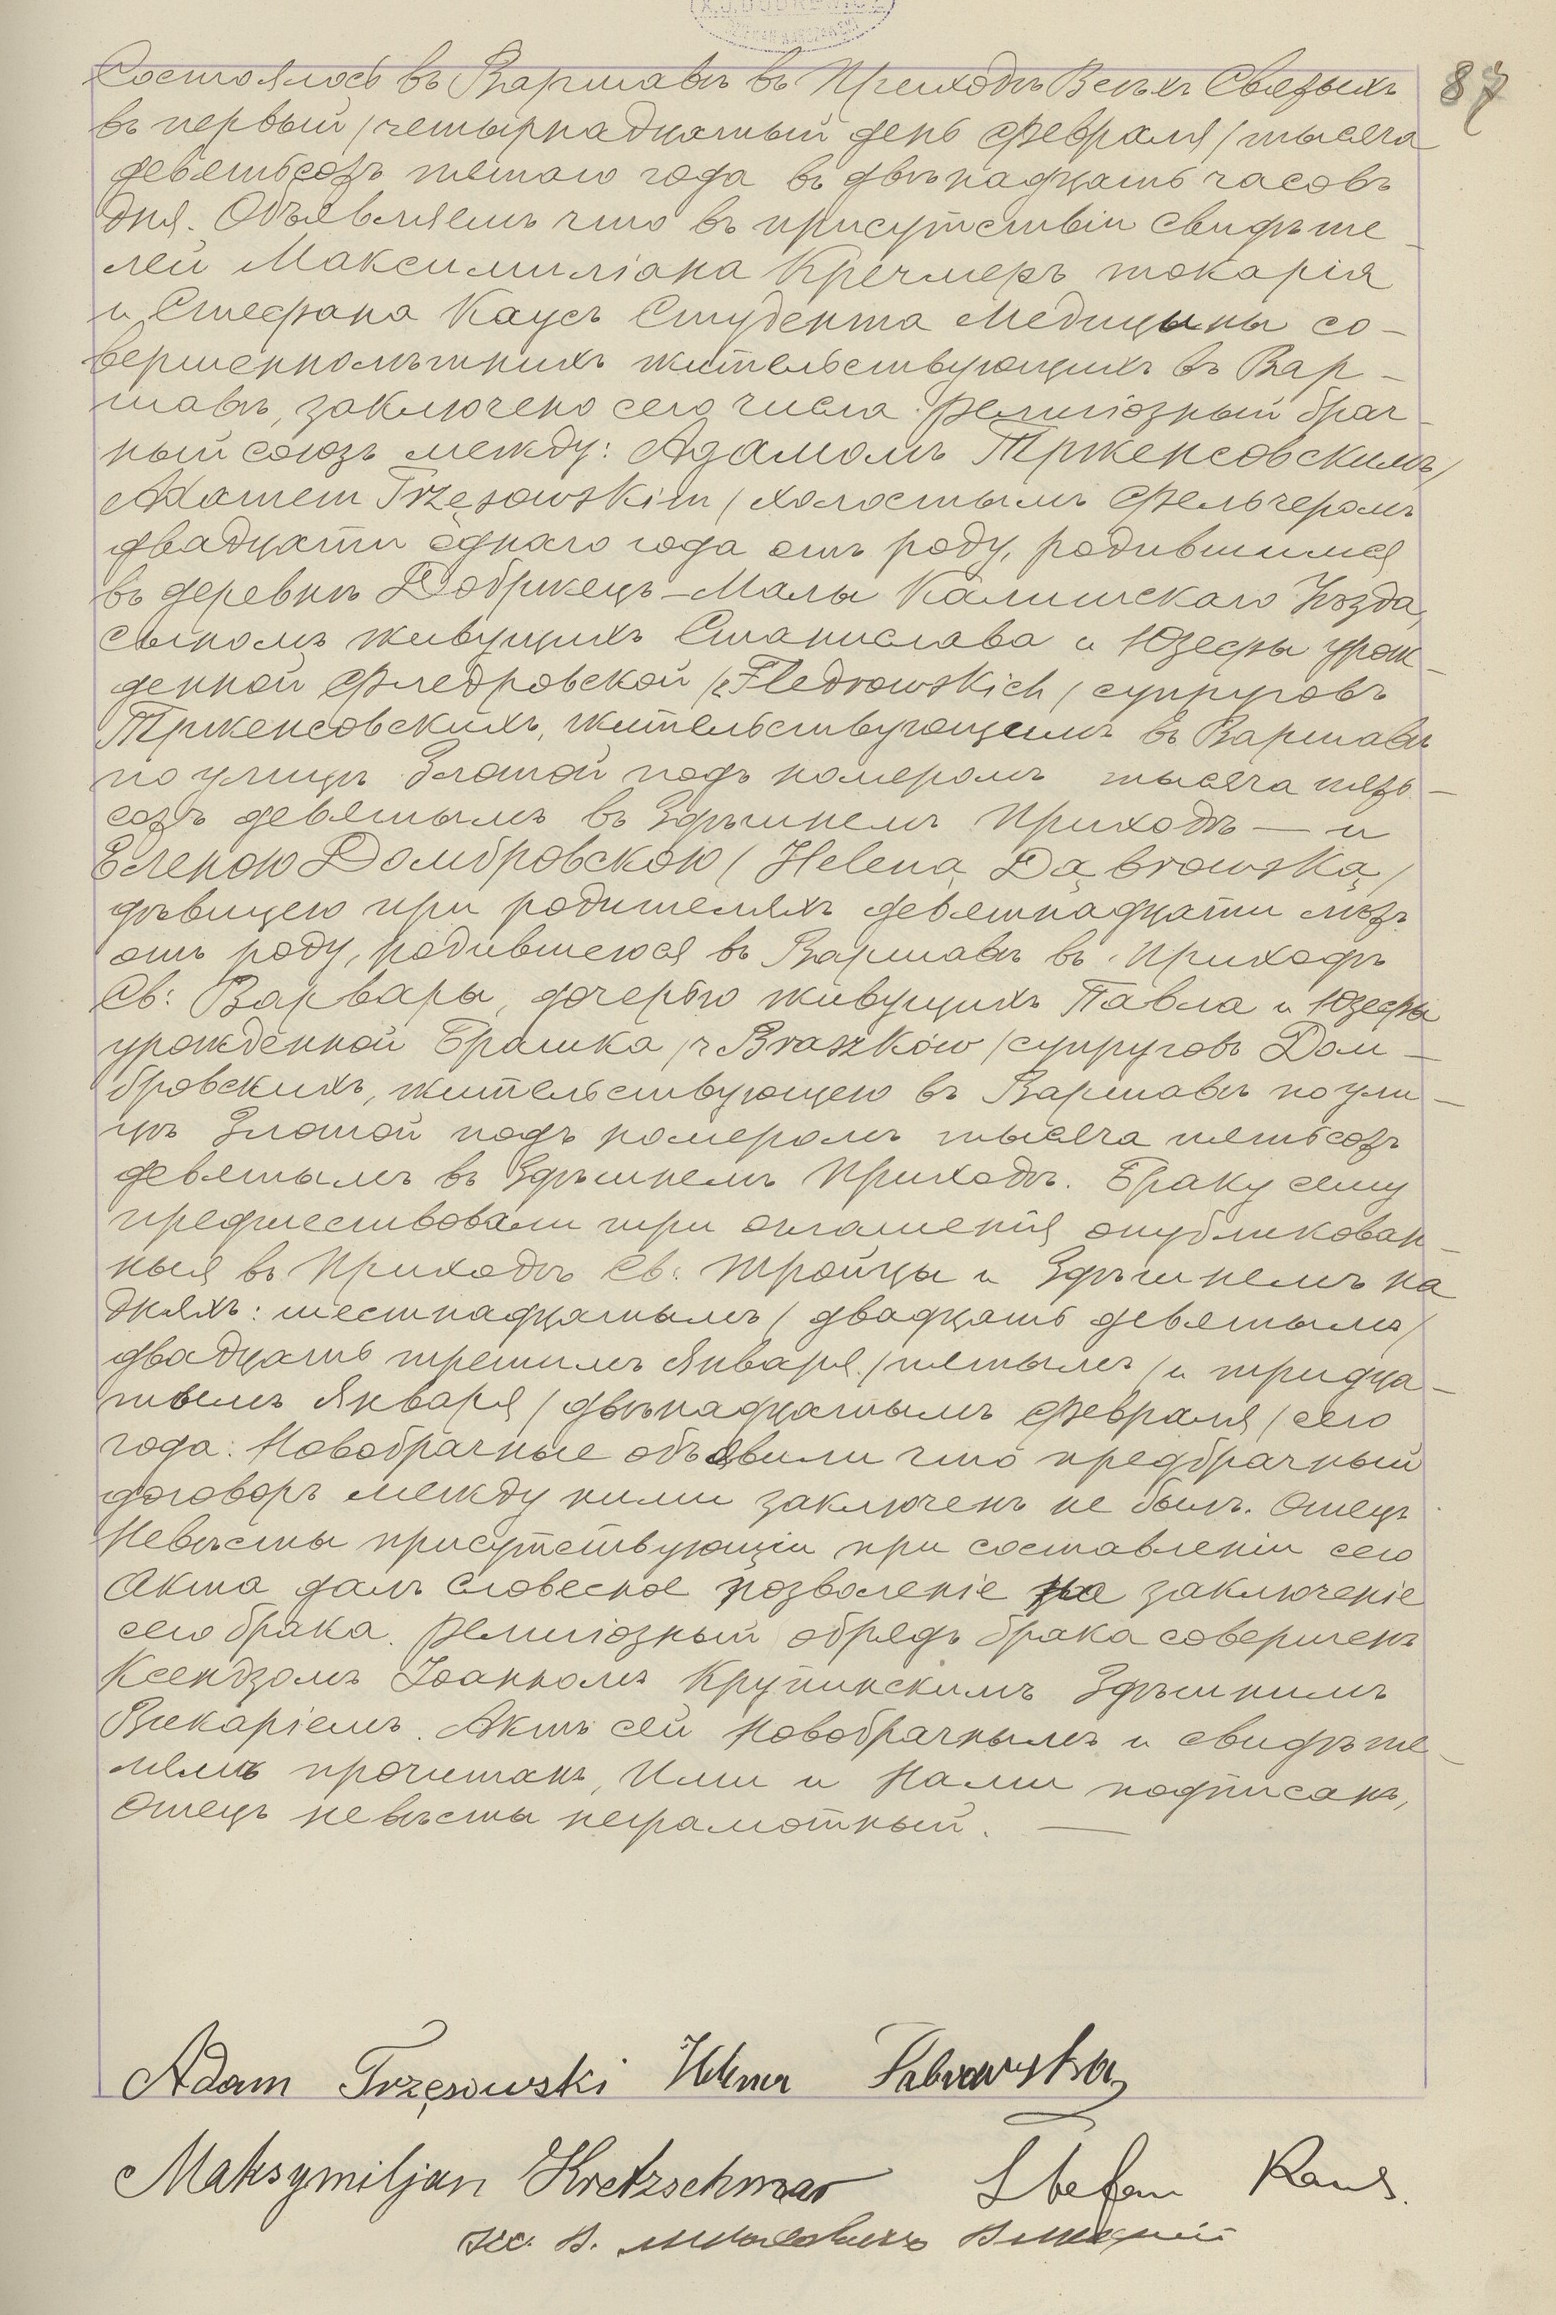 87
Состоялось въ Варшавѣ въ Приходѣ Всѣхъ Святыхъ
въ первый /четырнадцатый день Февраля/ тысяча
девятьсотъ пятаго года въ двѣнадцать часовъ
дня. Объявляемъ что въ присутствіи свидѣте-
лей Максимиліана Кречмеръ токарія
и Стефана Каусъ Студента Медицыны со-
вершеннолѣтнихъ жительствующихъ въ Вар-
шавѣ, заключено сего числа религіозный брач-
ный союзъ между: Адамомъ Трженсовскимъ/
Adamem Trzęsowskim/ холостымъ Фельчеромъ
двадцати однаго года отъ роду, родившимся
въ деревни Добржець-Малы Калишскаго Уѣзда,
сыномъ живущихъ Станислава и Юзефы урож-
денной Фледровской /z Fledrowskich/ супруговъ
Трженсовскихъ, жительствующимъ въ Варшавѣ
по улицѣ Злотой подъ номеромъ тысяча пять-
сотъ девятымъ въ Здѣшнемъ Приходѣ — и
Еленою Домбровскою /Heleną Dąbrowską/
дѣвицею при родителяхъ девятнадцати лѣтъ
отъ роду, родившеюся въ Варшавѣ въ Приходѣ
Св: Варвары, дочерью живущихъ Павла и Юзефы
урожденной Брашка /z Braszków/ супруговъ Дом-
бровскихъ, жительствующею въ Варшавѣ по ули-
цѣ Злотой подъ номеромъ тысяча пятьсотъ
девятымъ въ Здѣшнемъ Приходѣ. Браку сему
предшествовали три оглашенія опубликован-
ныя въ Приходѣ Св: Тройцы и Здѣшнемъ на
дняхъ: шестнадцатымъ /двадцать девятымъ/
двадцать третимъ Января /пятымъ/ и тридца-
тымъ Января /двѣнадцатымъ Февраля/ сего
года. Новобрачные объявили что предбрачный
договоръ между ними заключенъ не былъ. Отецъ
Невѣсты присутствующій при составленіи сего
Акта далъ словесное позволеніе на заключеніе
сего брака. Религіозный обрядъ брака совершенъ
Ксендзомъ Іоанномъ Крупинскимъ Здѣшнимъ
Викаріемъ. Актъ сей Новобрачнымъ и свидѣте-
лямъ прочитанъ, Ими и Нами подписанъ,
Отецъ невѣсты неграмотный. —
Adam Trzęsowski Helena Dabrowska
Maksymiljan Kretzschmar Stefan Kaus.
Кс. В.